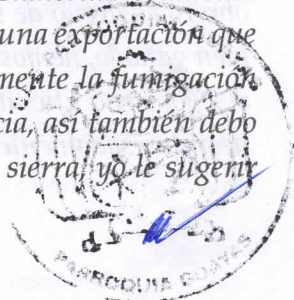 una exportación que
mente la fumigación
cia, así también debo
sierra, yo le sugerir
PARROQUIA